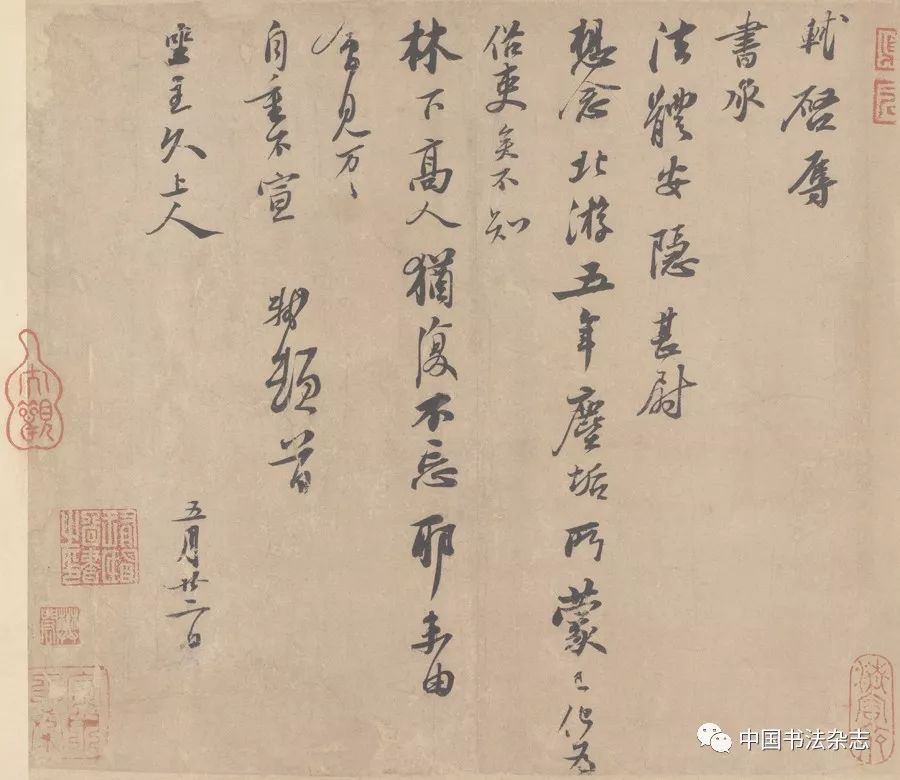 軾啓辱
書承
法體安隱甚尉
想念北游五年塵垢所蒙已化為
俗吏矣不知
林下高人猶復不忘耶未由
會見万〻
自重不宣 軾頓首
坐主久上人
五月廿二日
中国书法杂志